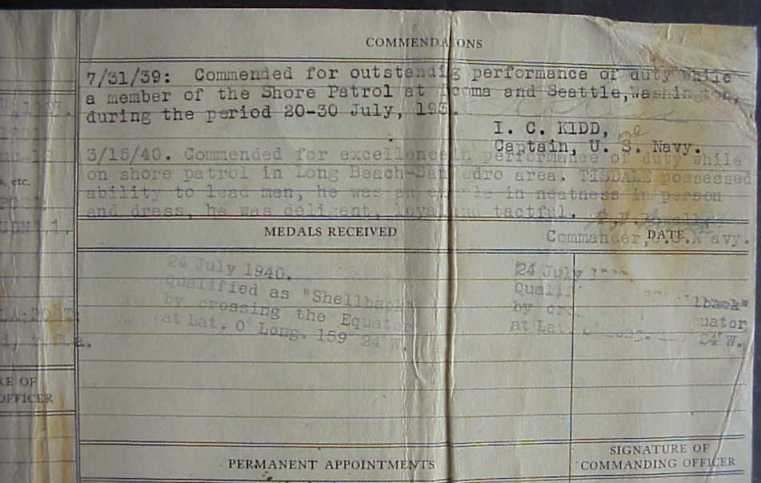 COMMENDATIONS
7/31/39: Commended for outstanding performance of duty while
a member of the Shore Patrol at and Seattle, Washington,
during the period 20-30 July, 193
I. C. KIDD,
Captain, U. S. Navy.
3/15/40. Commended for excellence in performance of duty while
on shore patrol in Long Beach-San area. TISDALE possessed
ability to lead men, he was an in neatness in person
and dress, he was deligent, tactful.
MEDALS RECEIVED
DATE
Commander, U.S. Navy.
24 July 1940.
Qualified as "Shellback"
by crossing the Equator
at Lat. 0 Long. 159 24 W.
24 July
Qualif llback"
by cr uator
at Lat. 24' W.
etc.
RE OF
OFFICER
PERMANENT APPOINTMENTS
SIGNATURE OF
COMMANDING OFFICER